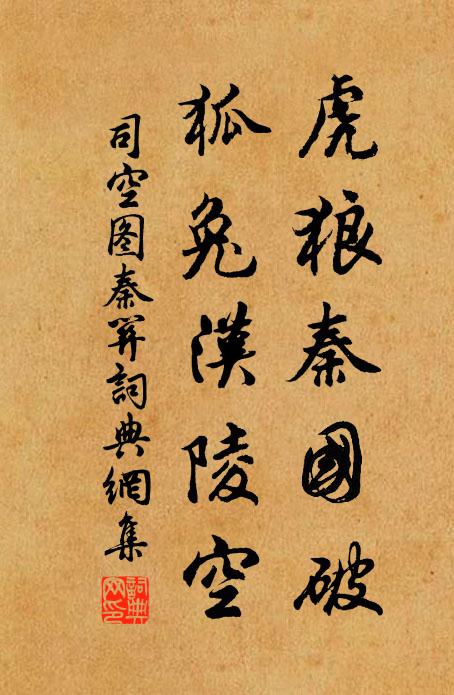 虎狼秦國破
狐兔漢陵空
司空图秦关詞典網集
詞典网印